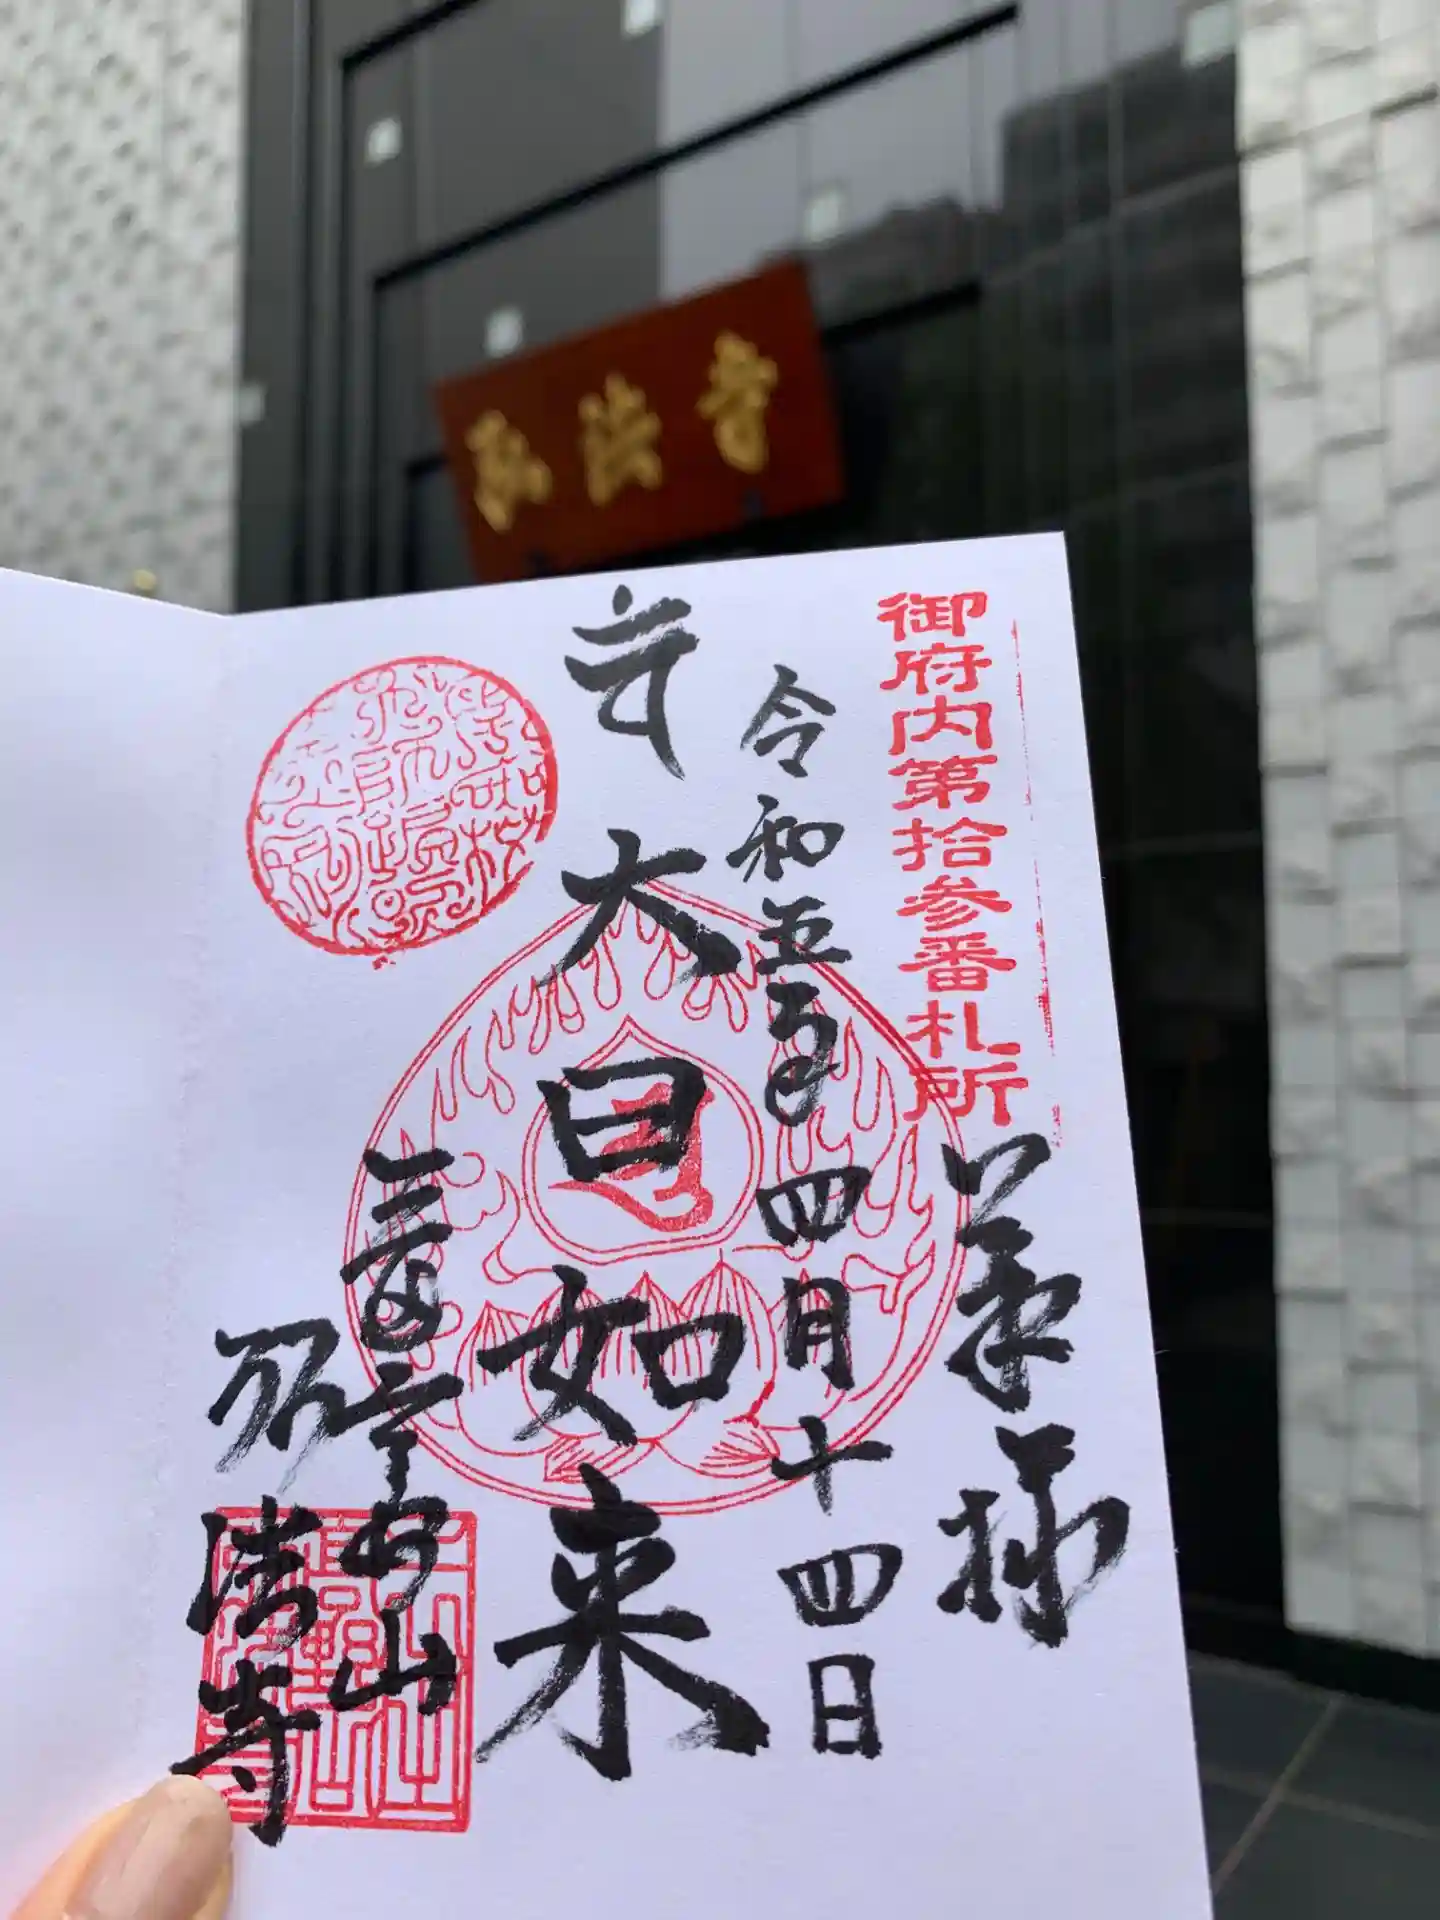 弘法寺
御府内第拾参番札所
奉拝
令和五年四月十四日
大日如来
三田高野山
弘法寺